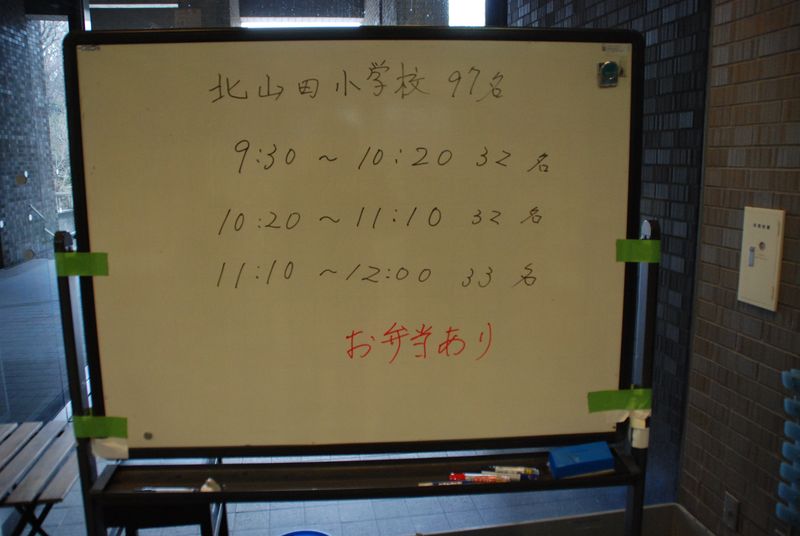 北山田小学校 97名
9:30 ~ 10:20 32名
10:20 ~ 11:10 32名
11:10 ~ 12:00 33名
お弁当あり